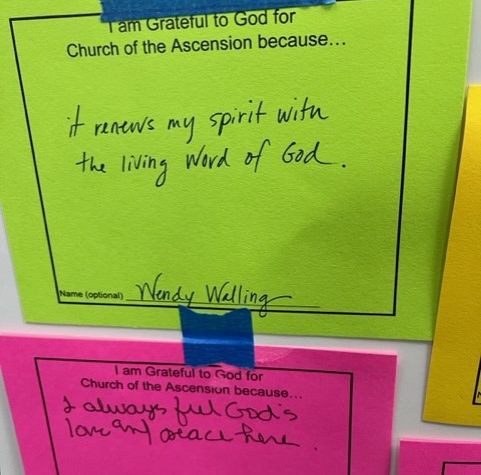 I am Grateful to God for
Church of the Ascension because...
it renews my spirit with
the living Word of God.
Name (optional) Wendy Walling
I am Grateful to God for
Church of the Ascension because...
I always feel God's
love and peace here.